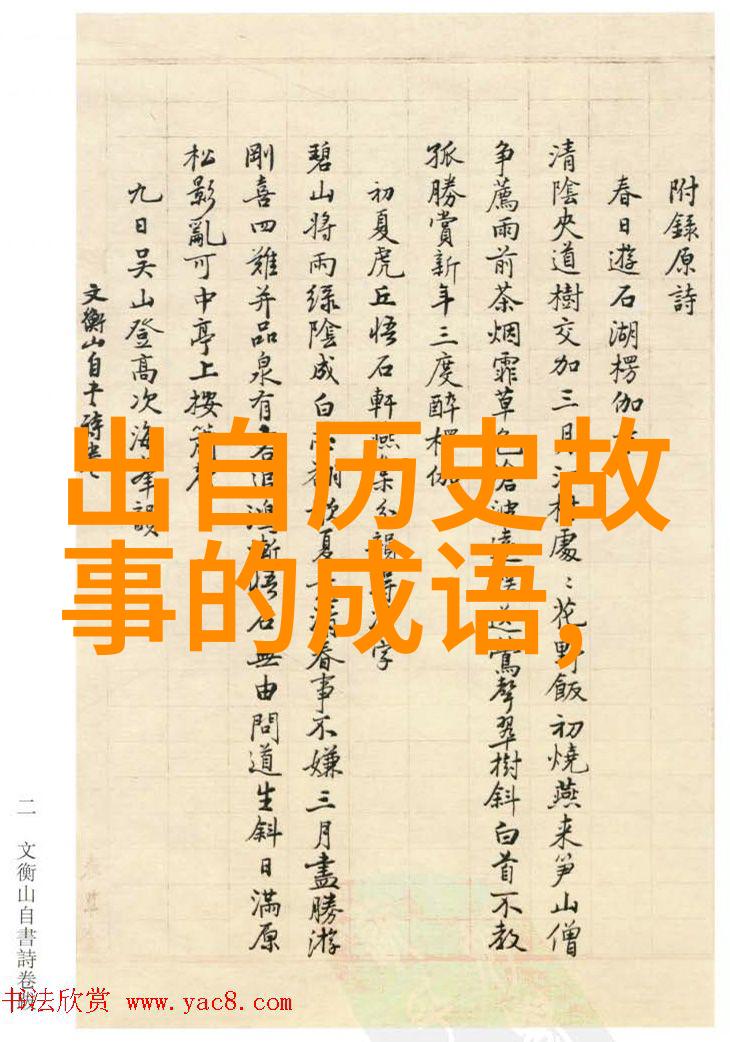 出自历史故
事的成语,
附錄原詩
春日遊石湖楞伽
清陰夾道樹交加三月處〻花野飯初燒燕来笋山僧
争薦雨前茶烟霏草色鶯聲翠樹斜白首不教
孤勝賞新年三度醉楞伽
初夏虎丘悟石軒燕集分韻字
碧山將雨綠陰成白夏清春事不嫌三月盡勝游
剛喜四難并品泉有悟石無由問道生斜日滿原
松影亂可中亭上按
九日吴山登高次海峯韻
文衡山自
二 文衡山自書詩卷跋
书法欣赏 www.yac8.com